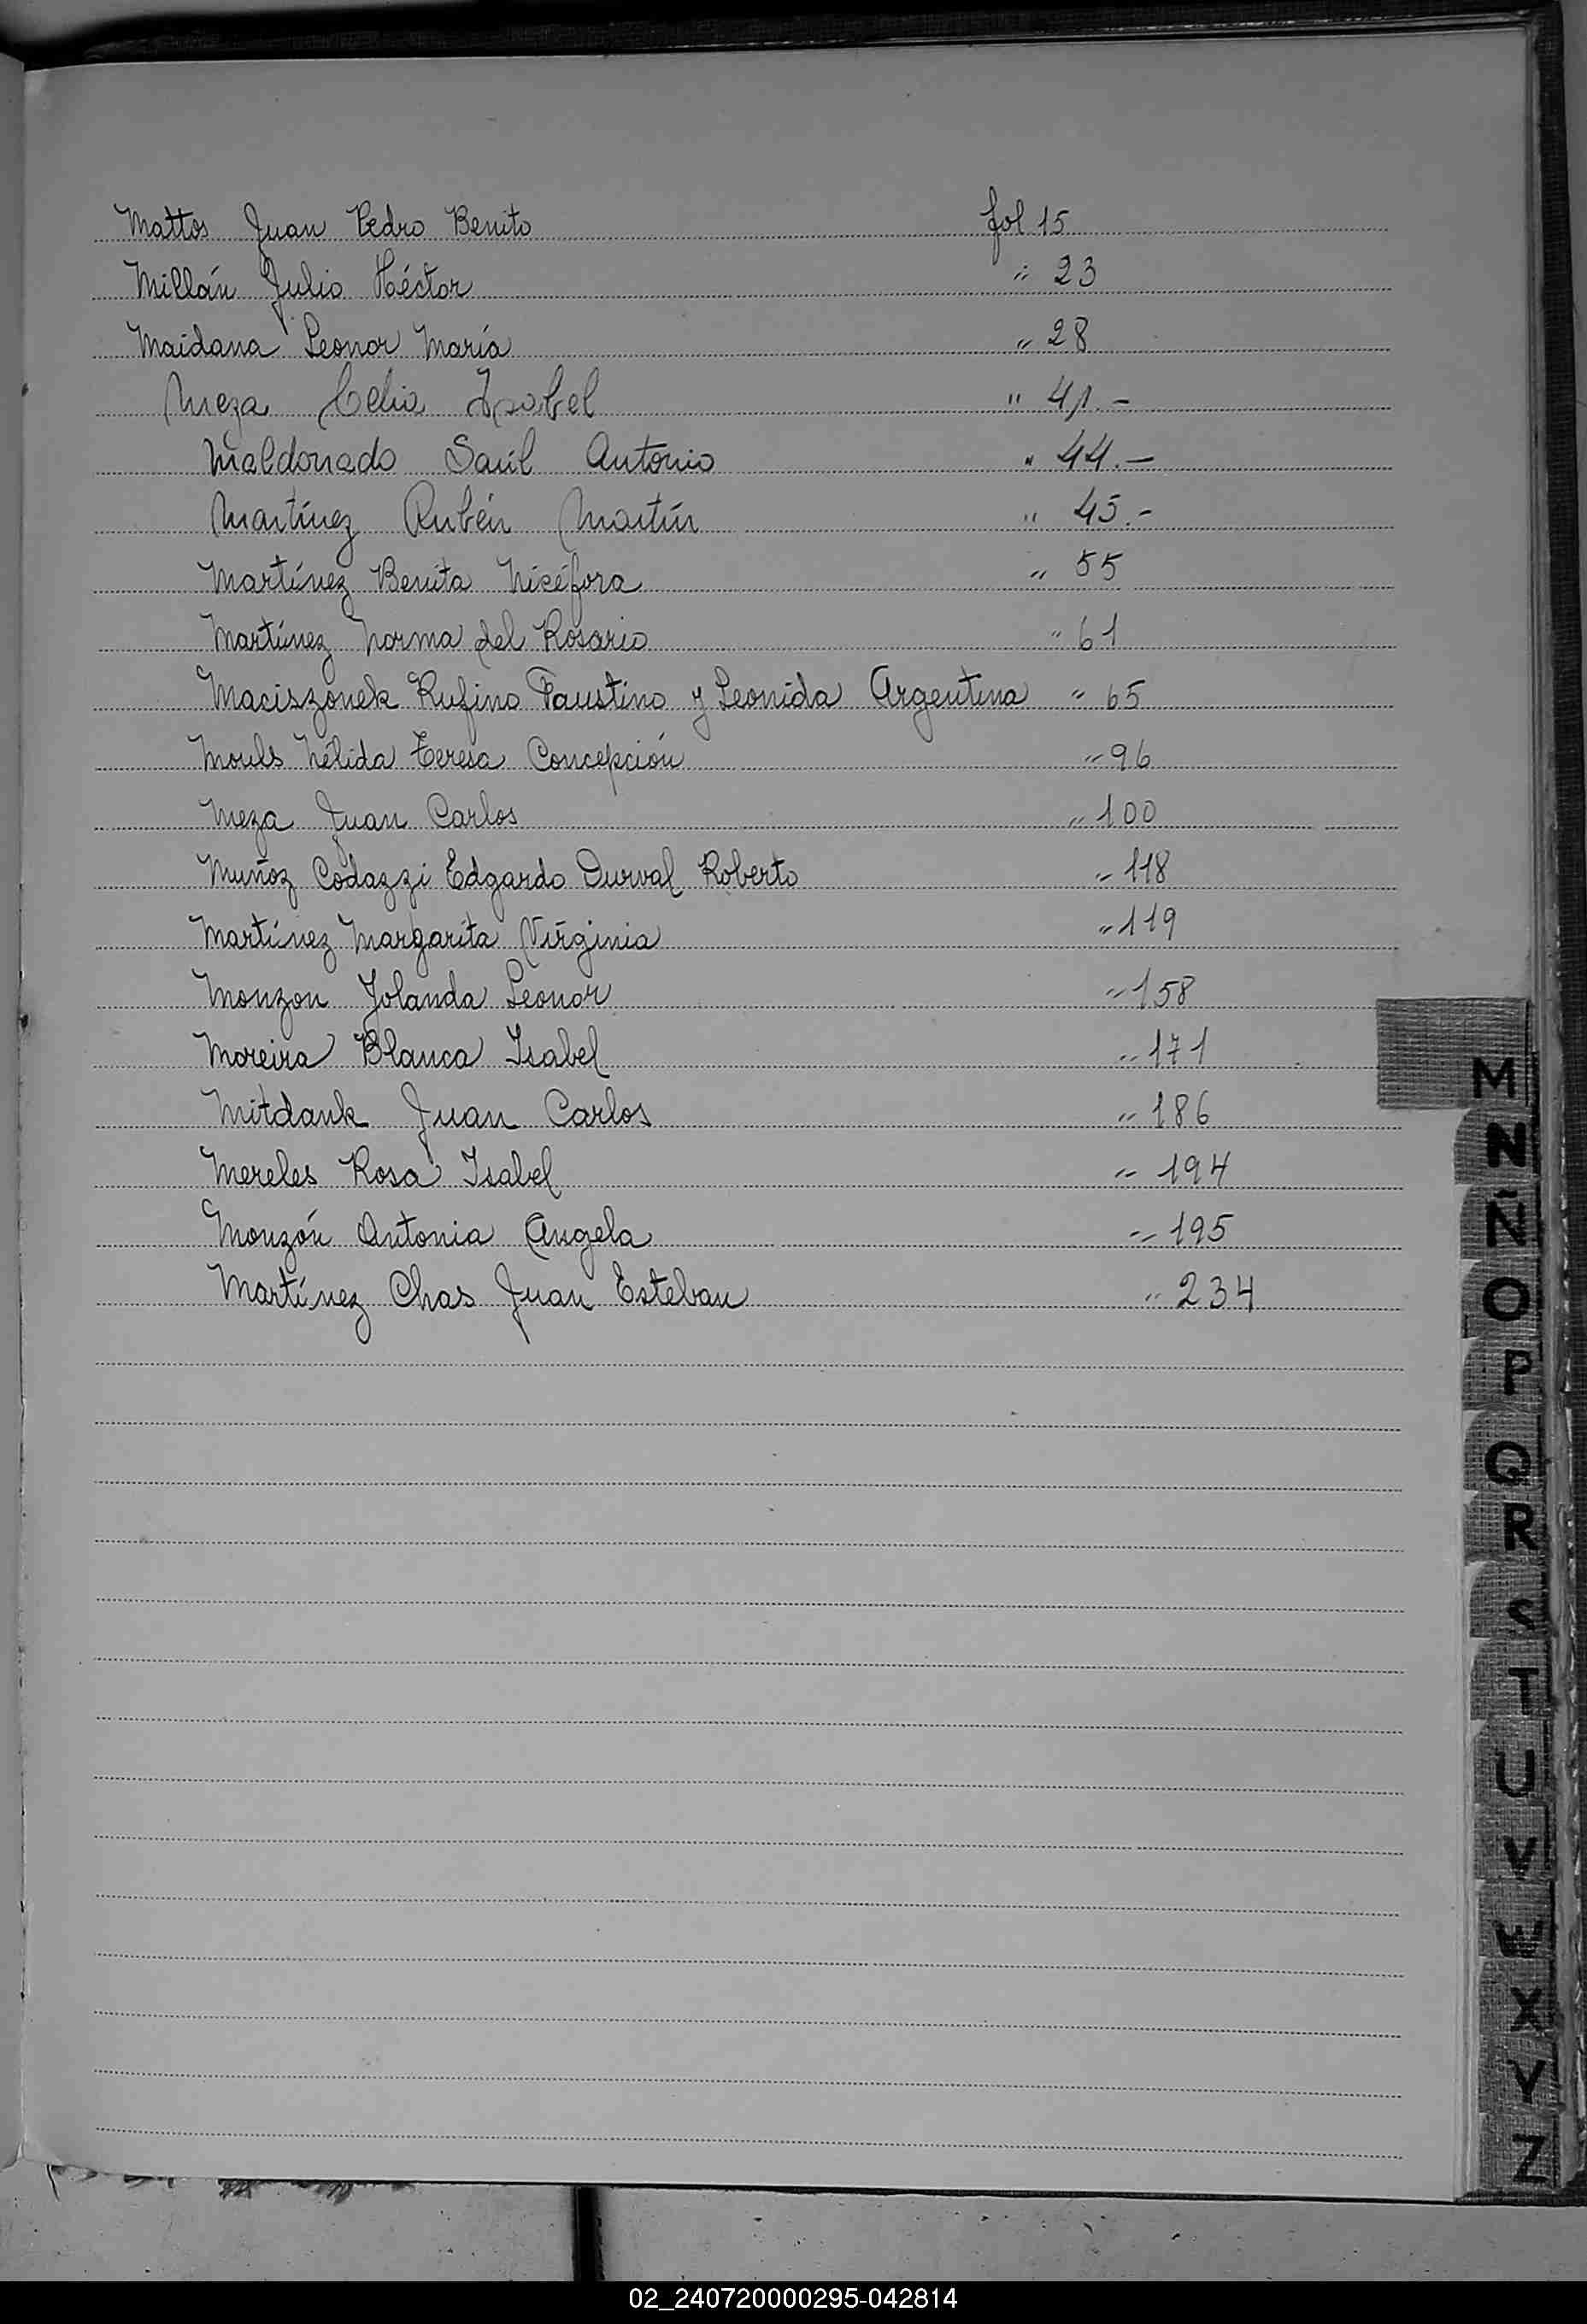 Mattos Juan Pedro Benito fol 15
Millán Julio Héctor " 23
Maidana Leonor María " 28
Meza Celia Isabel " 41.-
Maldonado Saúl Antonio " 44.-
Martínez Rubén Martín " 45.-
Martínez Benita Nicéfora " 55
Martínez Norma del Rosario " 61
Maciszonek Rufino Faustino y Leonida Argentina " 65
Mouls Nélida Teresa Concepción " 96
Meza Juan Carlos " 100
Muñoz Codazzi Edgardo Durval Roberto " 118
Martínez Margarita Virginia " 119
Monzon Yolanda Leonor " 158
Moreira Blanca Isabel " 171
Mitdank Juan Carlos " 186
Mereles Rosa Isabel " 194
Monzón Antonia Angela " 195
Martínez Chas Juan Esteban " 234
M
N
Ñ
O
P
Q
R
S
T
U
V
W
X
Y
Z
02_240720000295-042814